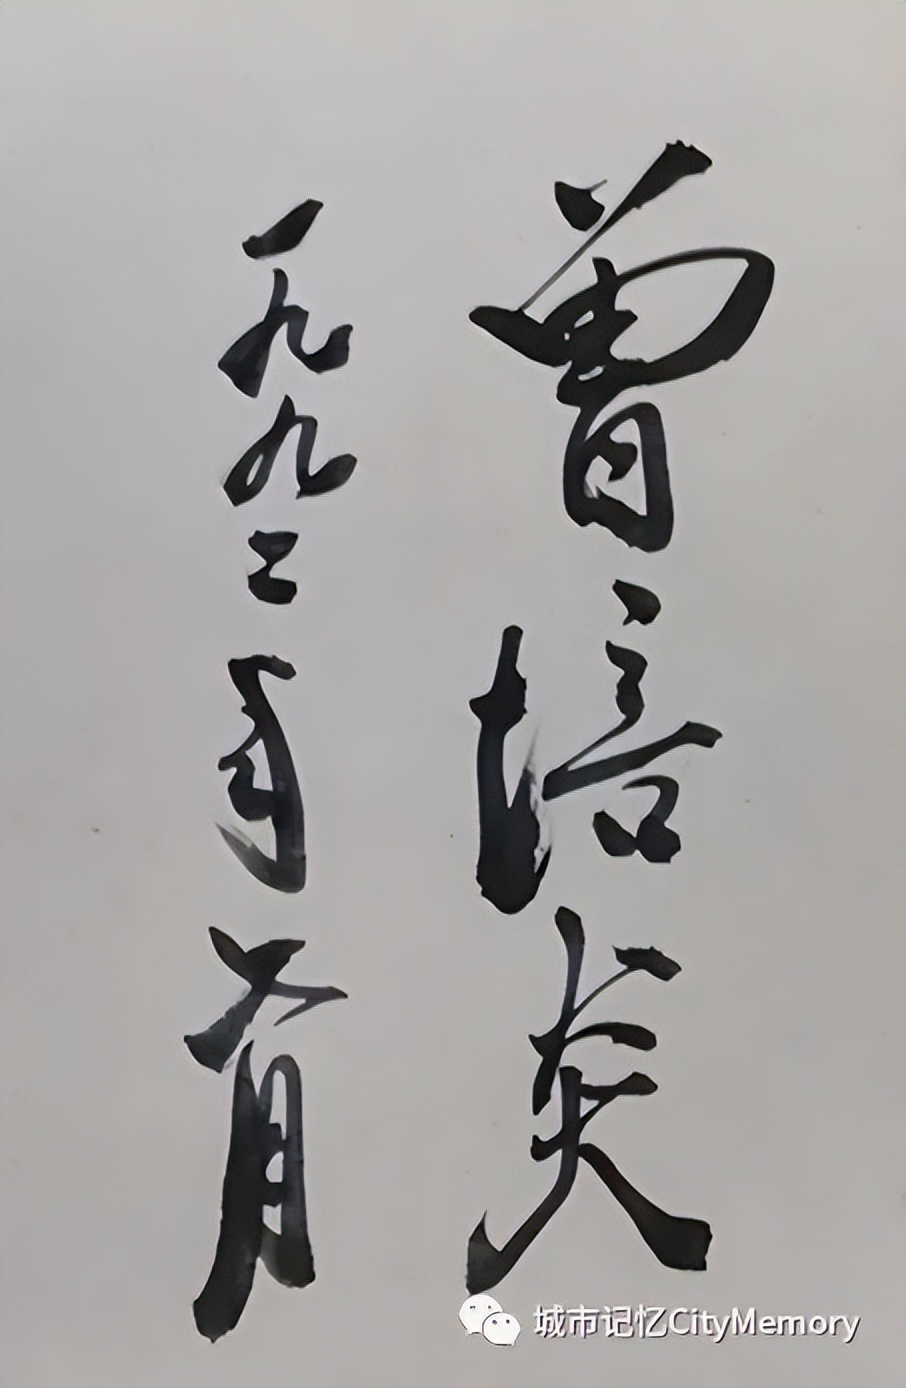 曾培炎
一九九二年六月
城市记忆CityMemory